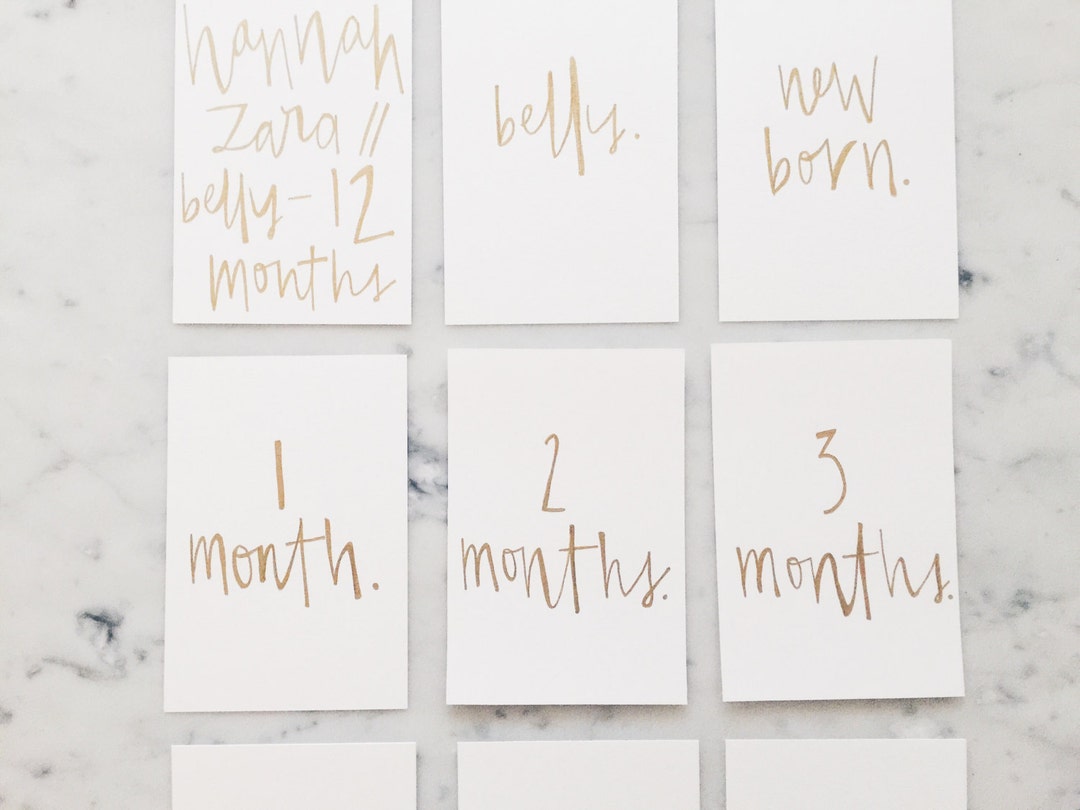 hannah
zara //
belly - 12
months
belly.
new
born.
1
month.
2
months.
3
months.